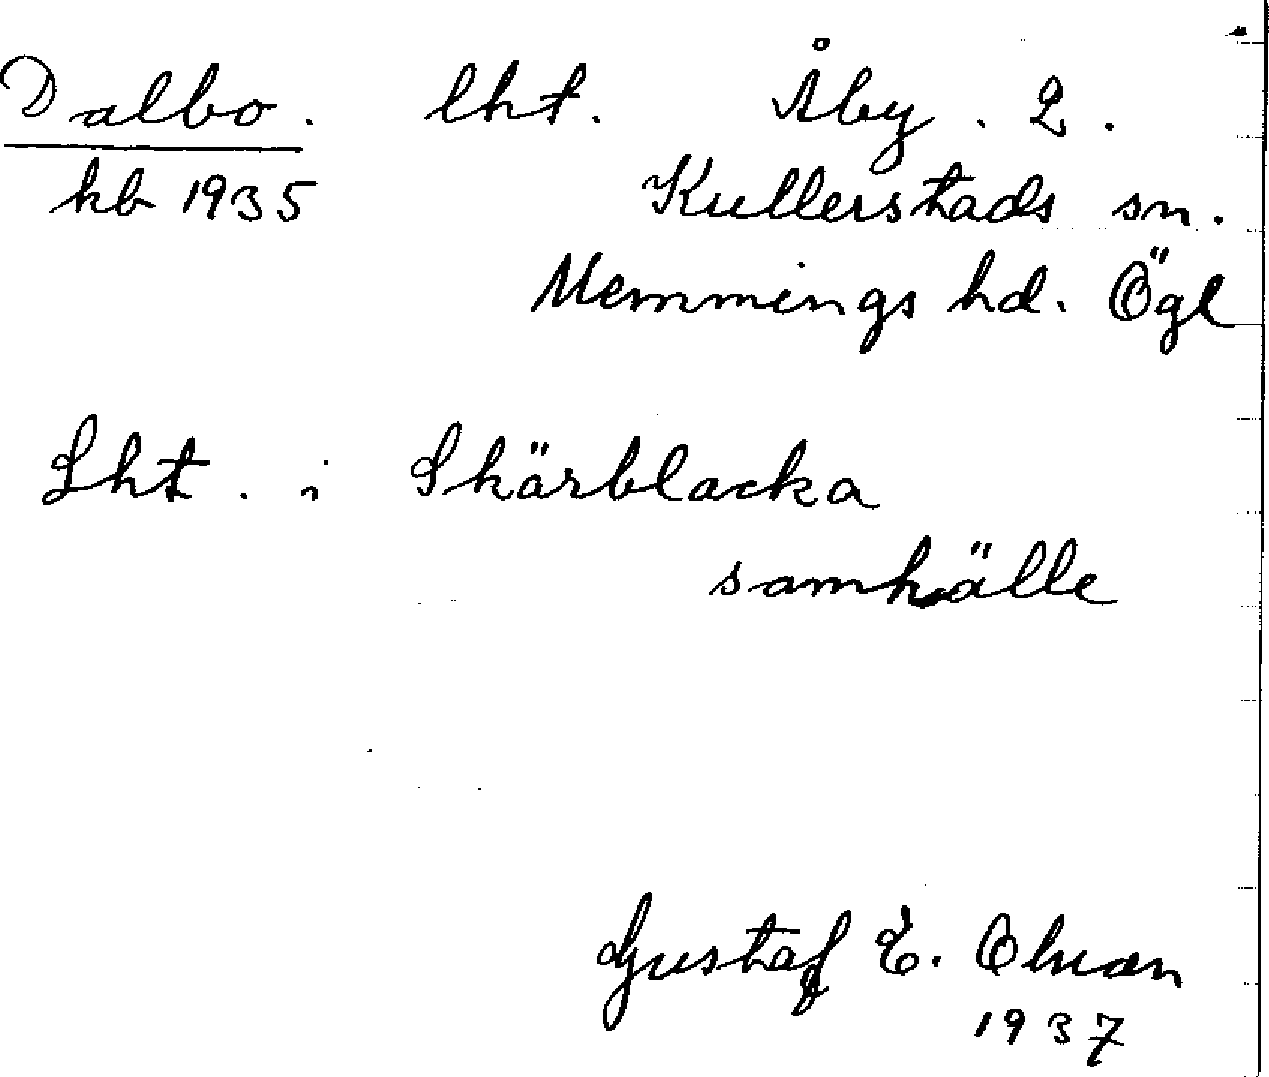 Dalbo. lht. Åby. 2.
kb 1935 Kullerstads sn.
Memmings hd. Ögl
Lht. i Skärblacka
samhälle
Gustaf E. Ohman
1937